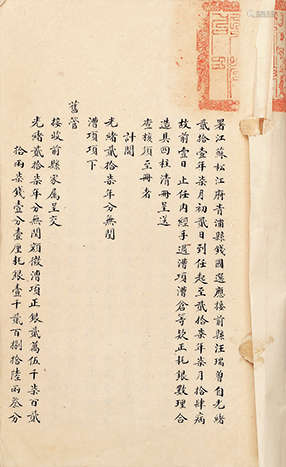 署江蘇松江府青浦縣錢國選應接前縣汪瑞曾自光緒
貳拾壹年柒月初貳日到任起至貳拾柒年柒月拾肆病
故前壹日止任內經手過漕項漕倉等款正耗銀數理合
造具四柱清冊呈送
查核須至冊者
計開
光緒貳拾柒年分無閏
漕項項下
舊管
接收前縣家屬呈交
光緒貳拾柒年分無閏額徵漕項正銀貳萬伍千柒百貳
拾兩柒錢壹分壹厘耗銀壹千貳百捌拾陸兩叁分